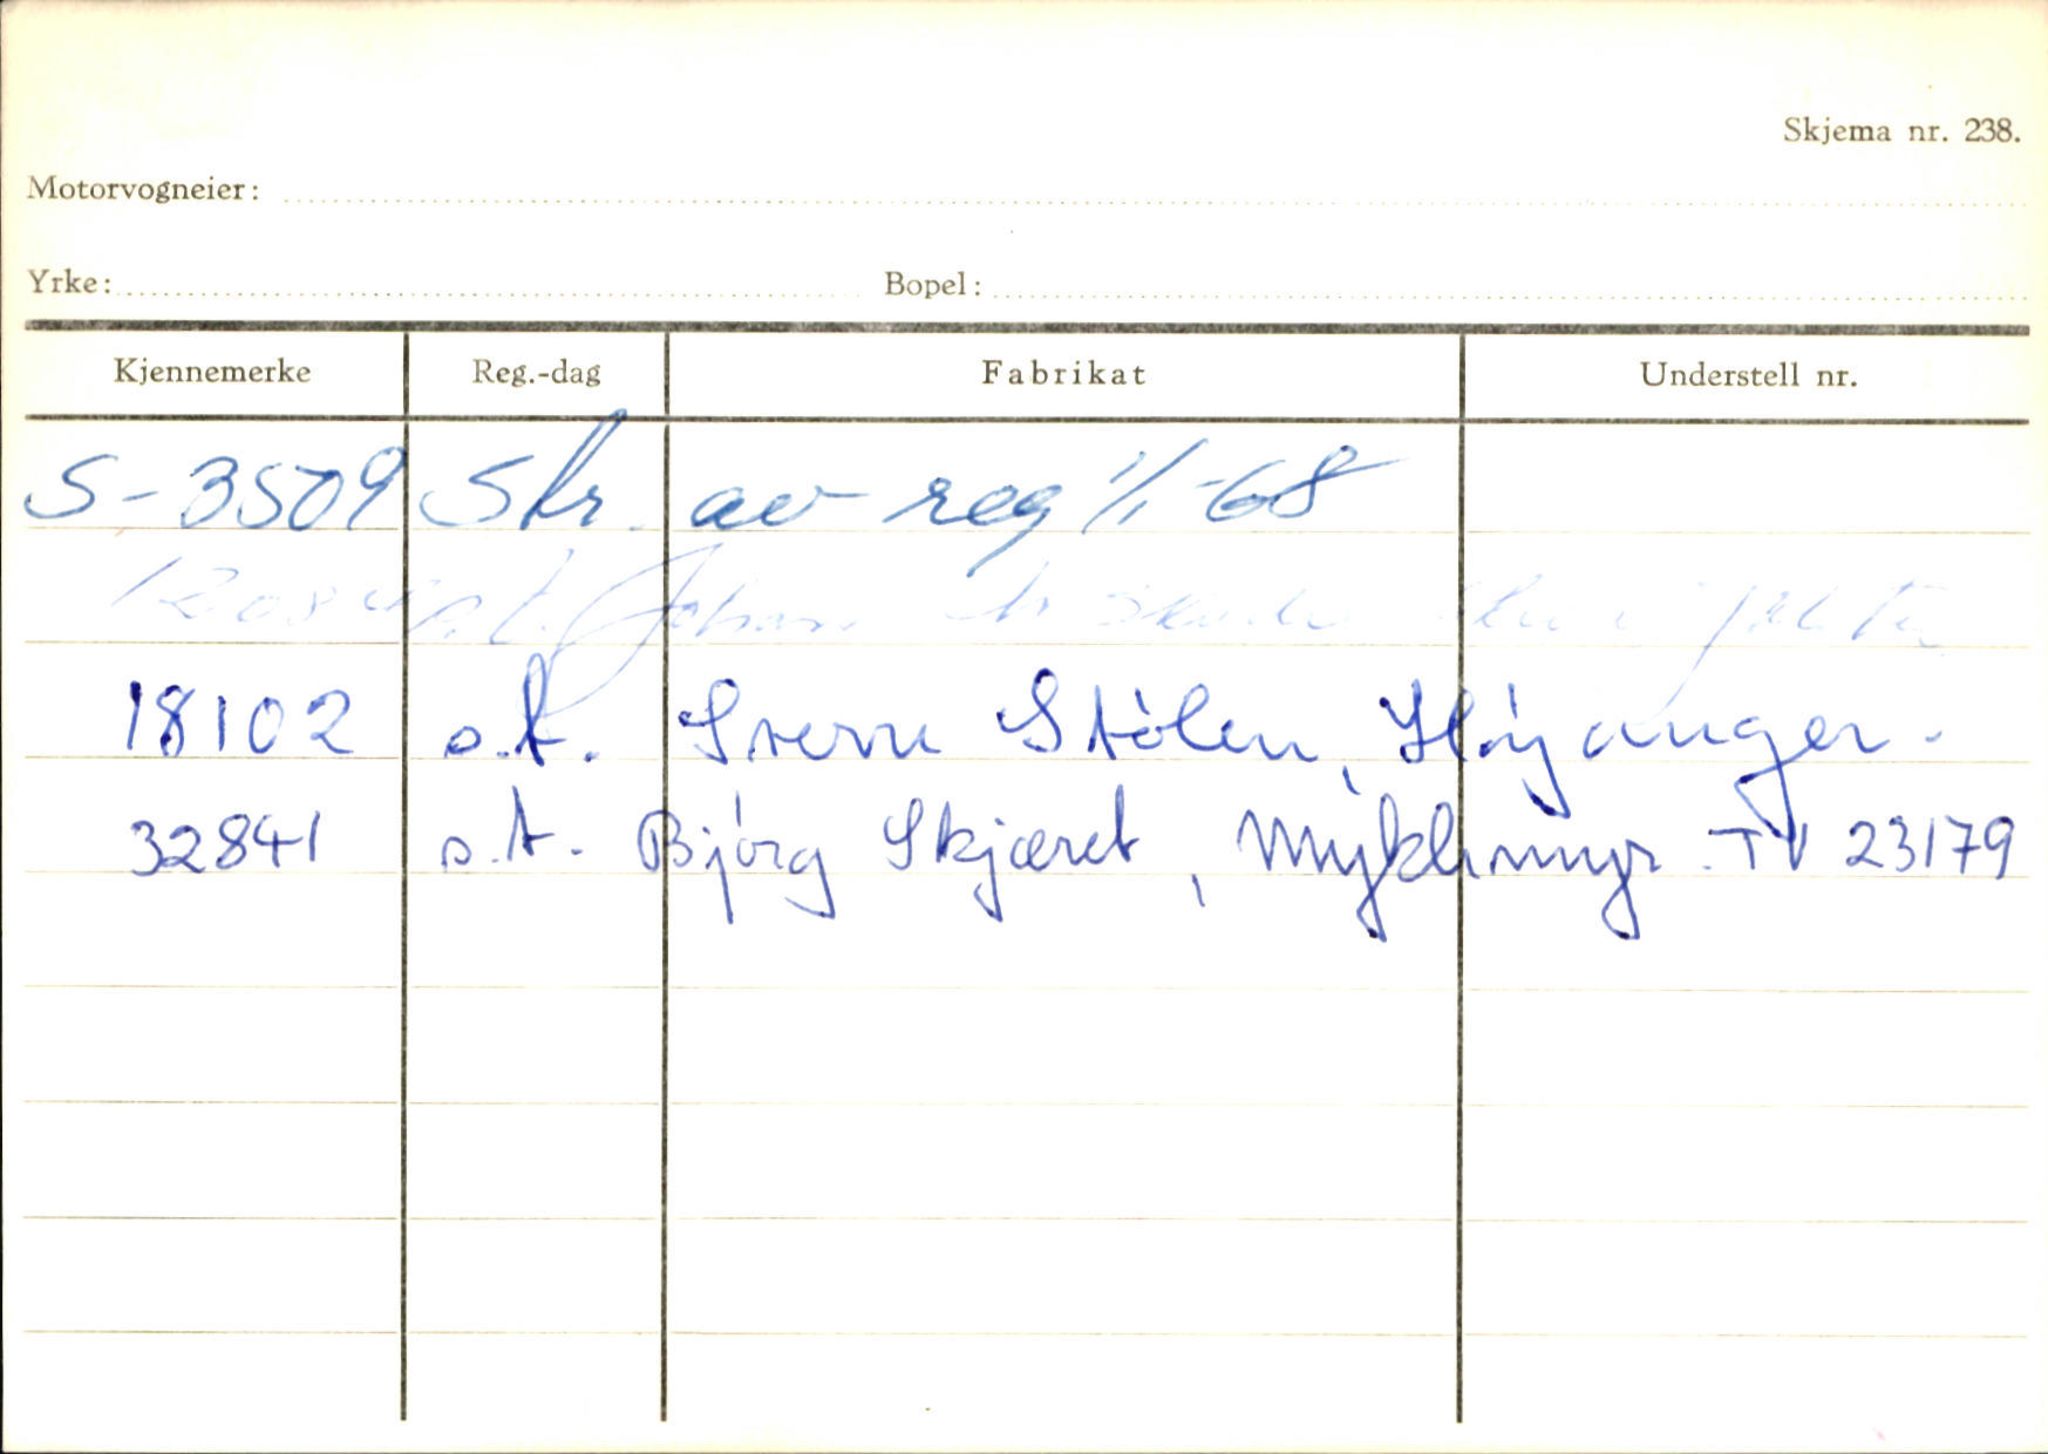 Skjema nr. 238.
Motorvogneier:
Yrke: Bopel:
Kjennemerke Reg.-dag Fabrikat Understell nr.
S-3509 Str. av reg 1/1-68
Johan
18102 o.t. Sverre Stölen, Höyanger.
32841 o.t. Björg Skjæret, Myklemyr. TV 23179